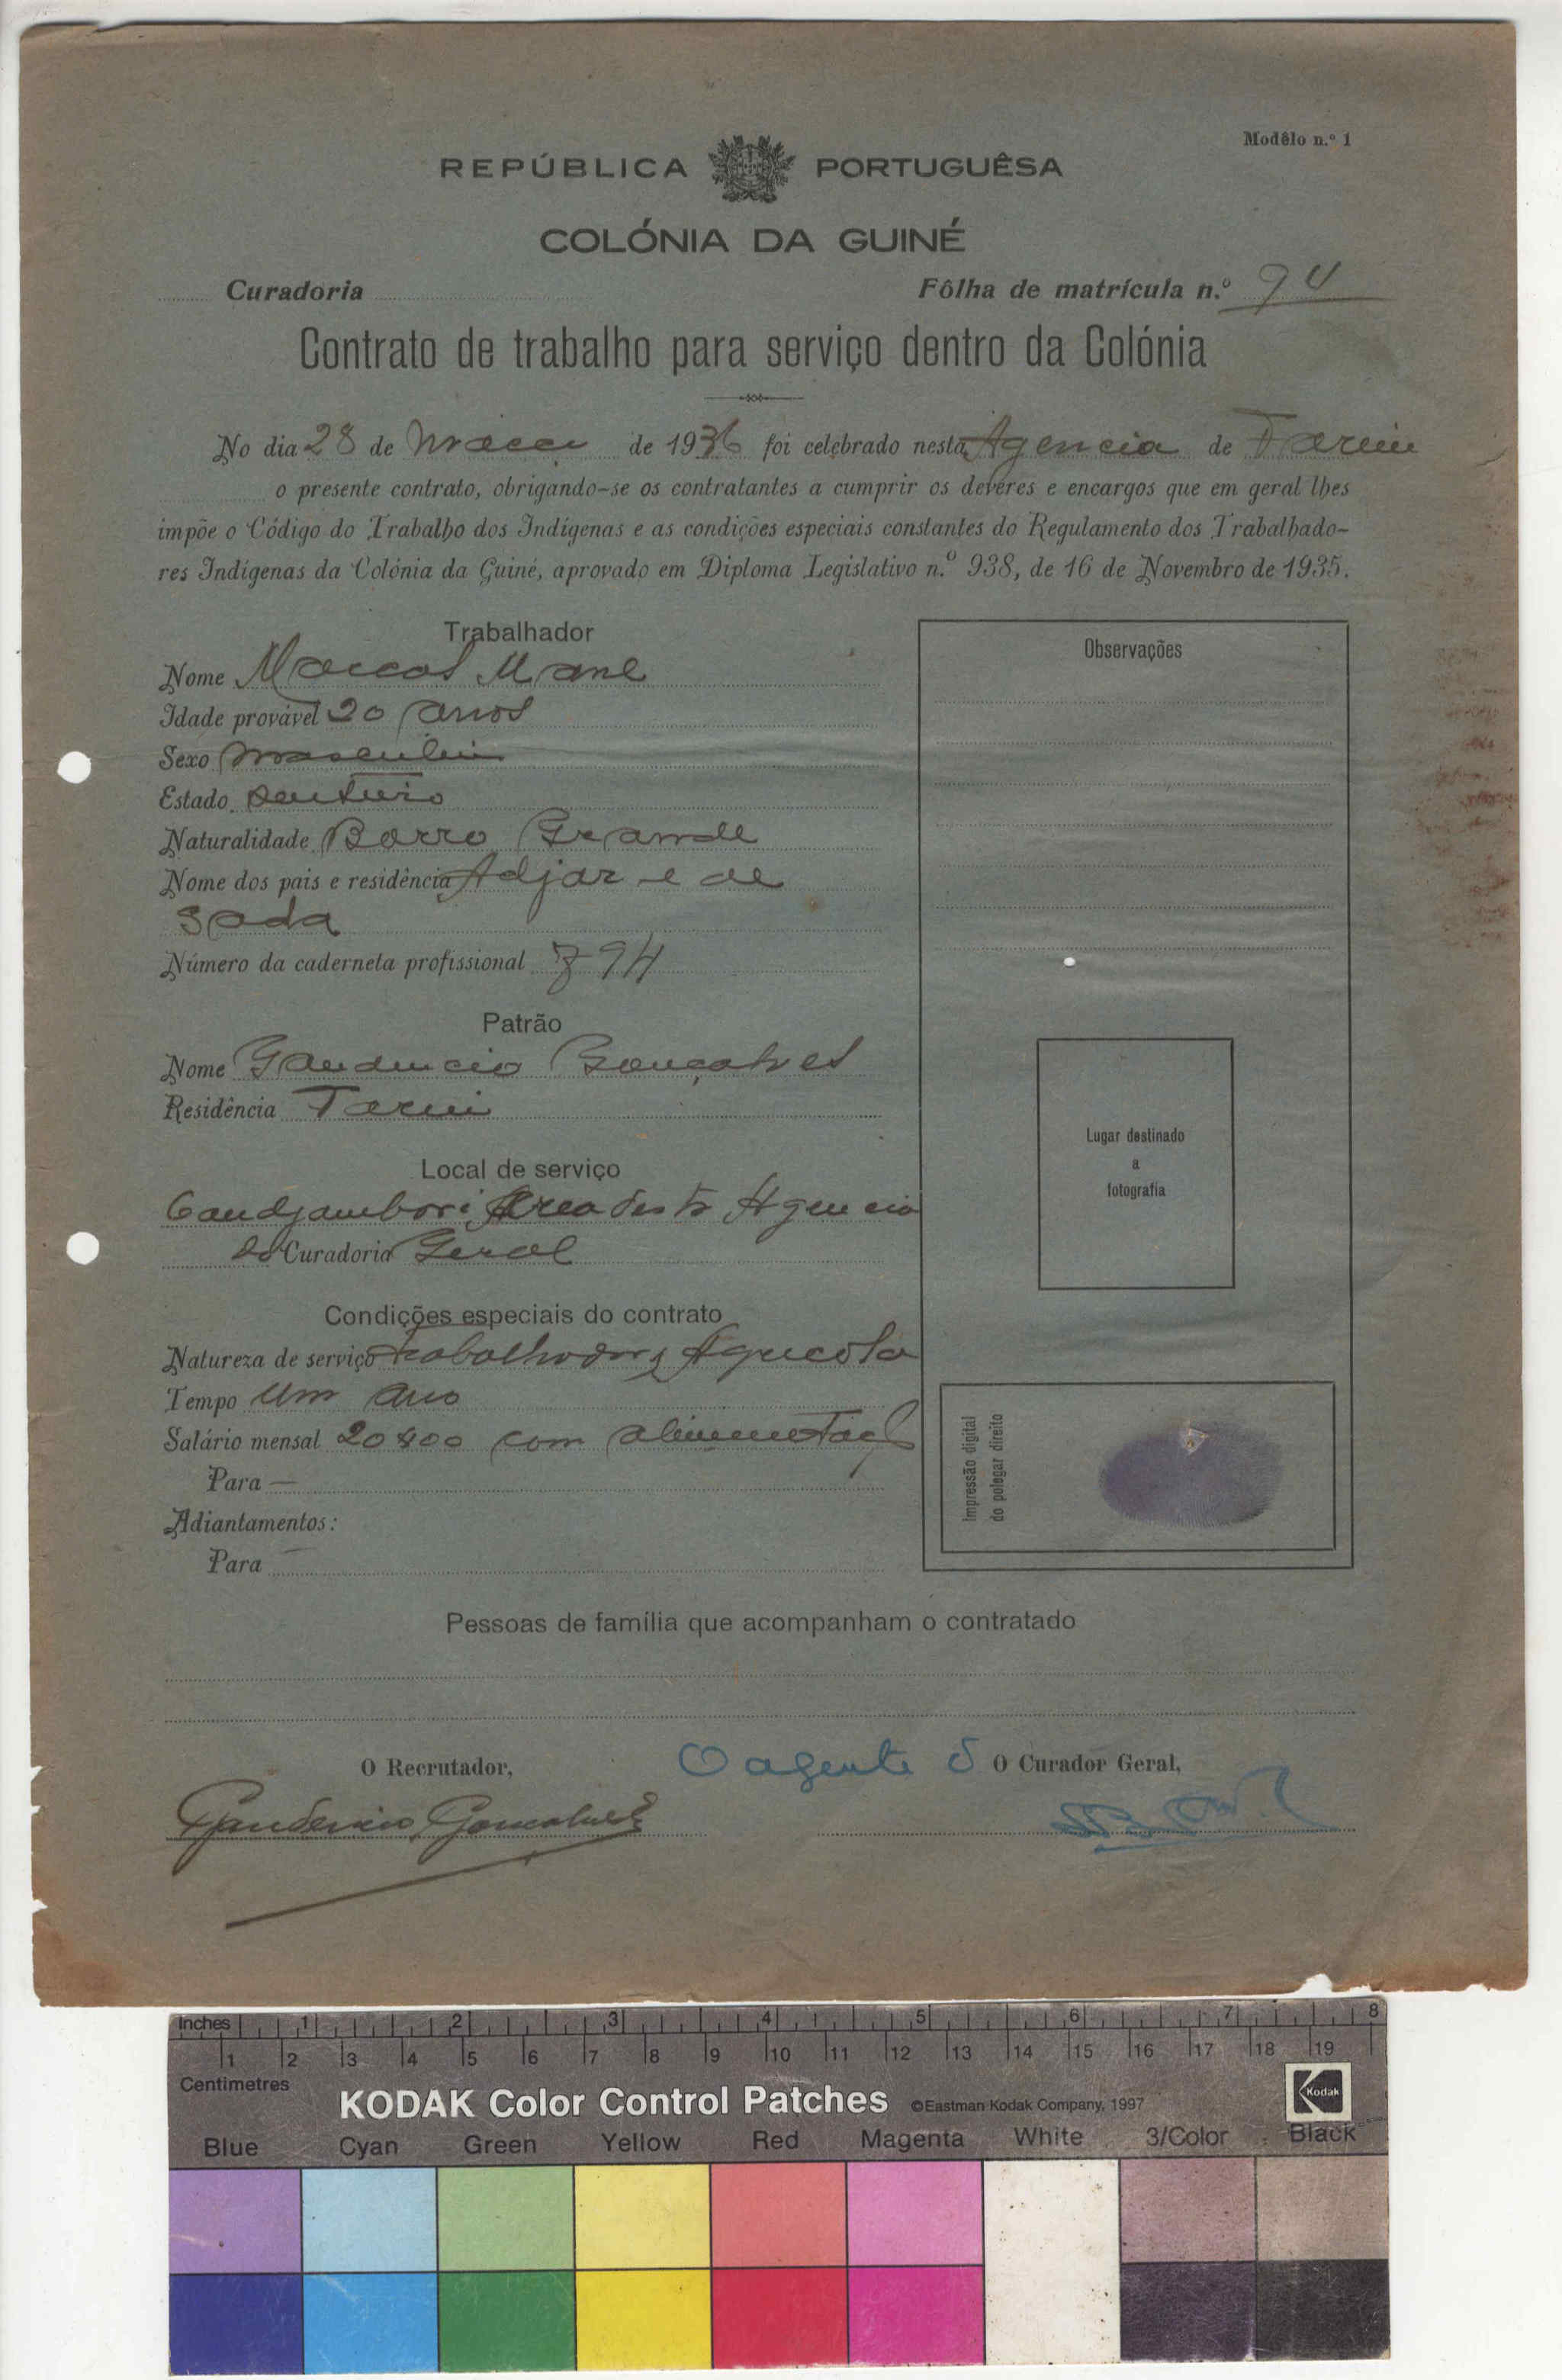 Modêlo n.º 1
REPÚBLICA PORTUGUÊSA
COLÓNIA DA GUINÉ
Curadoria Fôlha de matrícula n.º 94
Contrato de trabalho para serviço dentro da Colónia
No dia 28 de de 1936 foi celebrado nesta Agencia de Farim
o presente contrato, obrigando-se os contratantes a cumprir os deveres e encargos que em geral lhes
impõe o Código do Trabalho dos Indígenas e as condições especiais constantes do Regulamento dos Trabalhado-
res Indígenas da Colónia da Guiné, aprovado em Diploma Legislativo n.º 938, de 16 de Novembro de 1935.
Trabalhador
Nome Marcos Mané
Idade provável 20 anos
Sexo masculino
Estado
Naturalidade Barro Grande
Nome dos pais e residência Adjar e de
Sada
Número da caderneta profissional 794
Patrão
Nome Gaudencio Gonçalves
Residência Farim
Local de serviço
Candjambori Area desta Agencia
da Curadoria Geral
Condições especiais do contrato
Natureza de serviço Agricola
Tempo um ano
Salário mensal 20$00 com alimentação
Para —
Adiantamentos:
Para —
Observações
Lugar destinado
a
fotografia
Impressão digital
do polegar direito
Pessoas de família que acompanham o contratado
O Recrutador, O agente O Curador Geral,
Gaudencio Gonçalves
Inches 1 2 3 4 5 6 7 8
1 2 3 4 5 6 7 8 9 10 11 12 13 14 15 16 17 18 19
Centimetres
KODAK Color Control Patches ©Eastman Kodak Company, 1997 Kodak
Blue Cyan Green Yellow Red Magenta White 3/Color Black